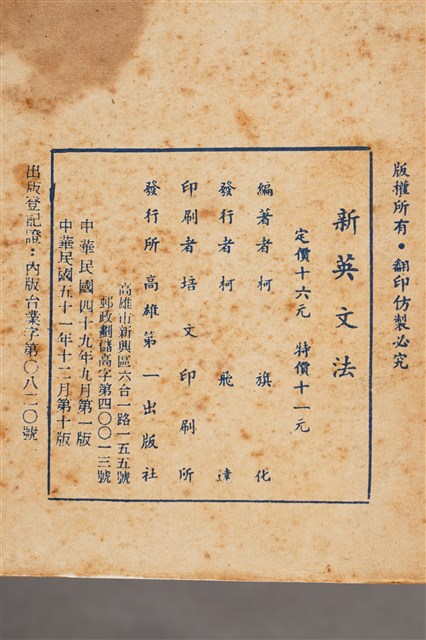 版權所有・翻印仿製必究
新英文法
定價十六元 特價十一元
編著者柯旗化
發行者柯飛達
印刷者培文印刷所
發行所高雄第一出版社
高雄市新興區六合一路一五五號
郵政劃儲高字第四〇〇一三號
中華民國四十九年九月第一版
中華民國五十一年十二月第十版
出版登記證：內版台業字第〇八二〇號